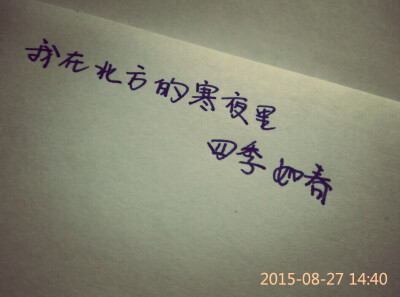 我在北方的寒夜里
四季如春
2015-08-27 14:40